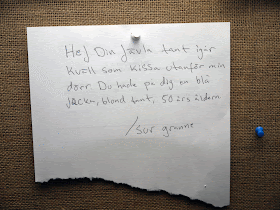 Hej Din jävla tant igår
kväll som kissa utanför min
dörr Du hade på dig en blå
jacka, blond tant, 50 års åldern
/Sur granne